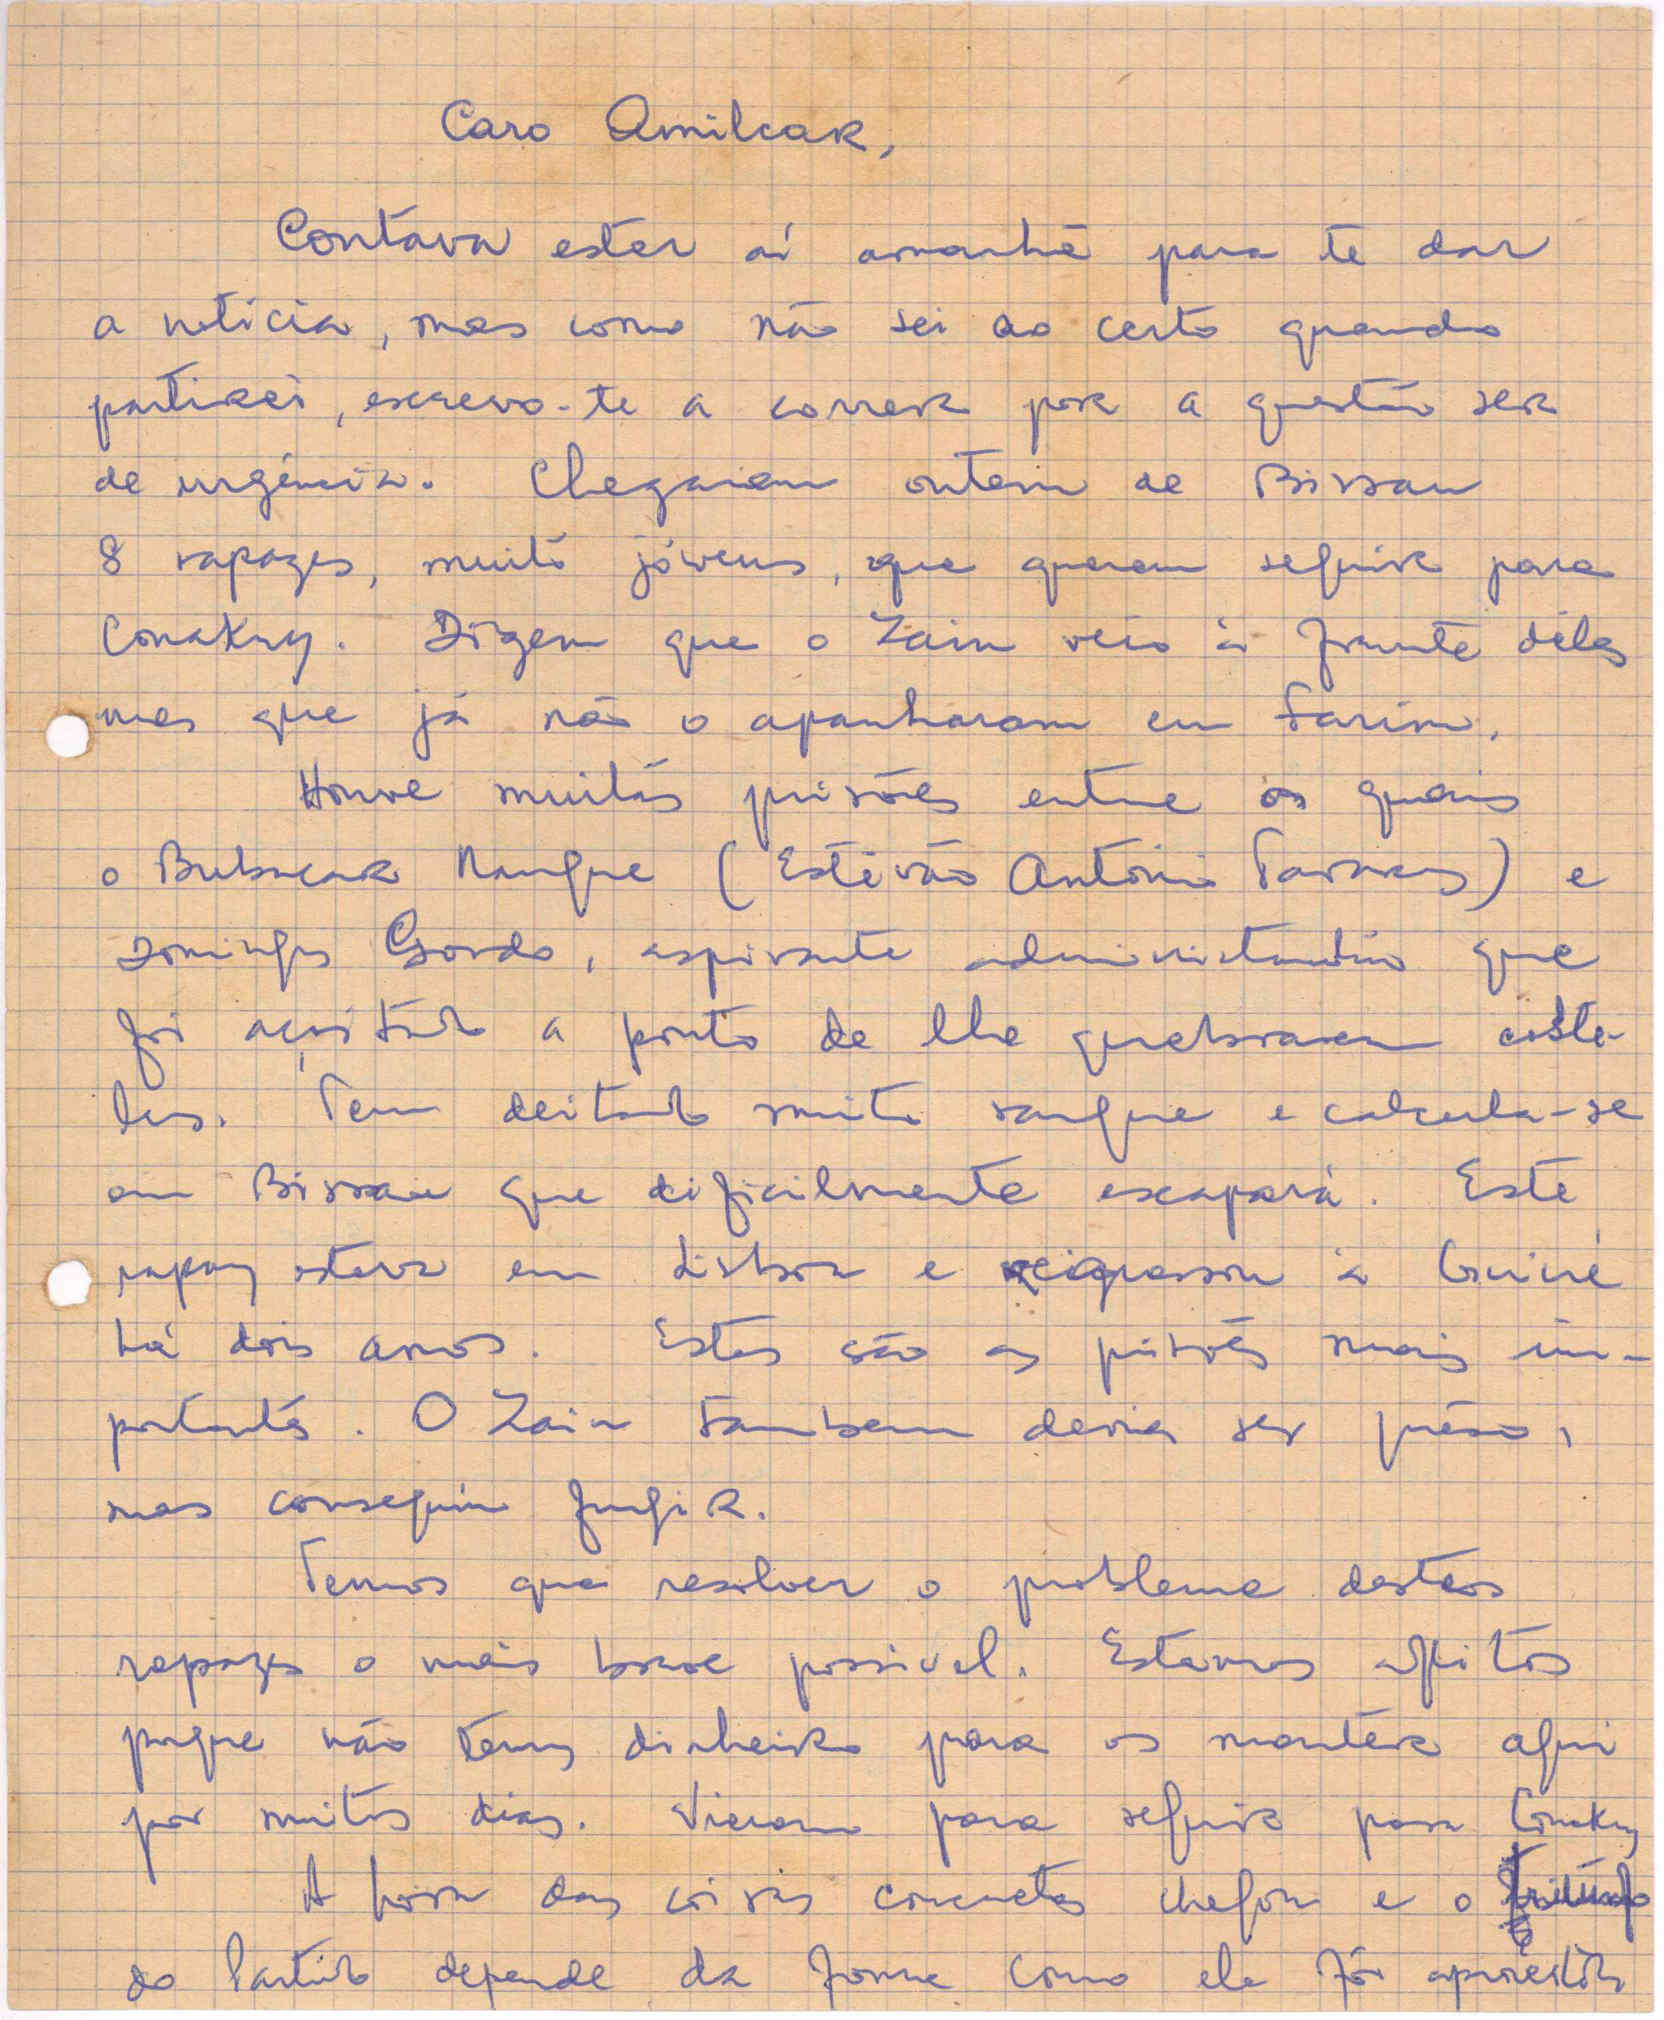 Caro Amilcar,
Contava estar aí amanhã para te dar
a notícia, mas como não sei ao certo quando
partirei, escrevo-te a correr por a questão ser
de urgência. Chegaram ontem de Bissau
8 rapazes, muito jóvens, que querem seguir para
Conakry. Dizem que o Zain veio à frente dêles
mas que já não o apanharam em Farim.
Houve muitas prisões entre os quais
o Bubacar Nangue (Estêvão António Tavares) e
Domingos Gordo, aspirante administrativo que
foi açoitado a ponto de lhe quebrarem coste-
las. Tem deitado muito sangue e calcula-se
em Bissau que dificilmente escapará. Este
rapaz esteve em Lisboa e regressou à Guiné
há dois anos. Estas são as prisões mais im-
portantes. O Zain tambem devia ser prêso,
mas conseguiu fugir.
Temos que resolver o problema destes
rapazes o mais breve possivel. Estamos aflitos
porque não temos dinheiro para os mantêr aqui
por muitos dias. Vieram para seguir para Conakry
A hora das coisas concretas chegou e o triunfo
do Partido depende da forma como ela fôr aproveitada